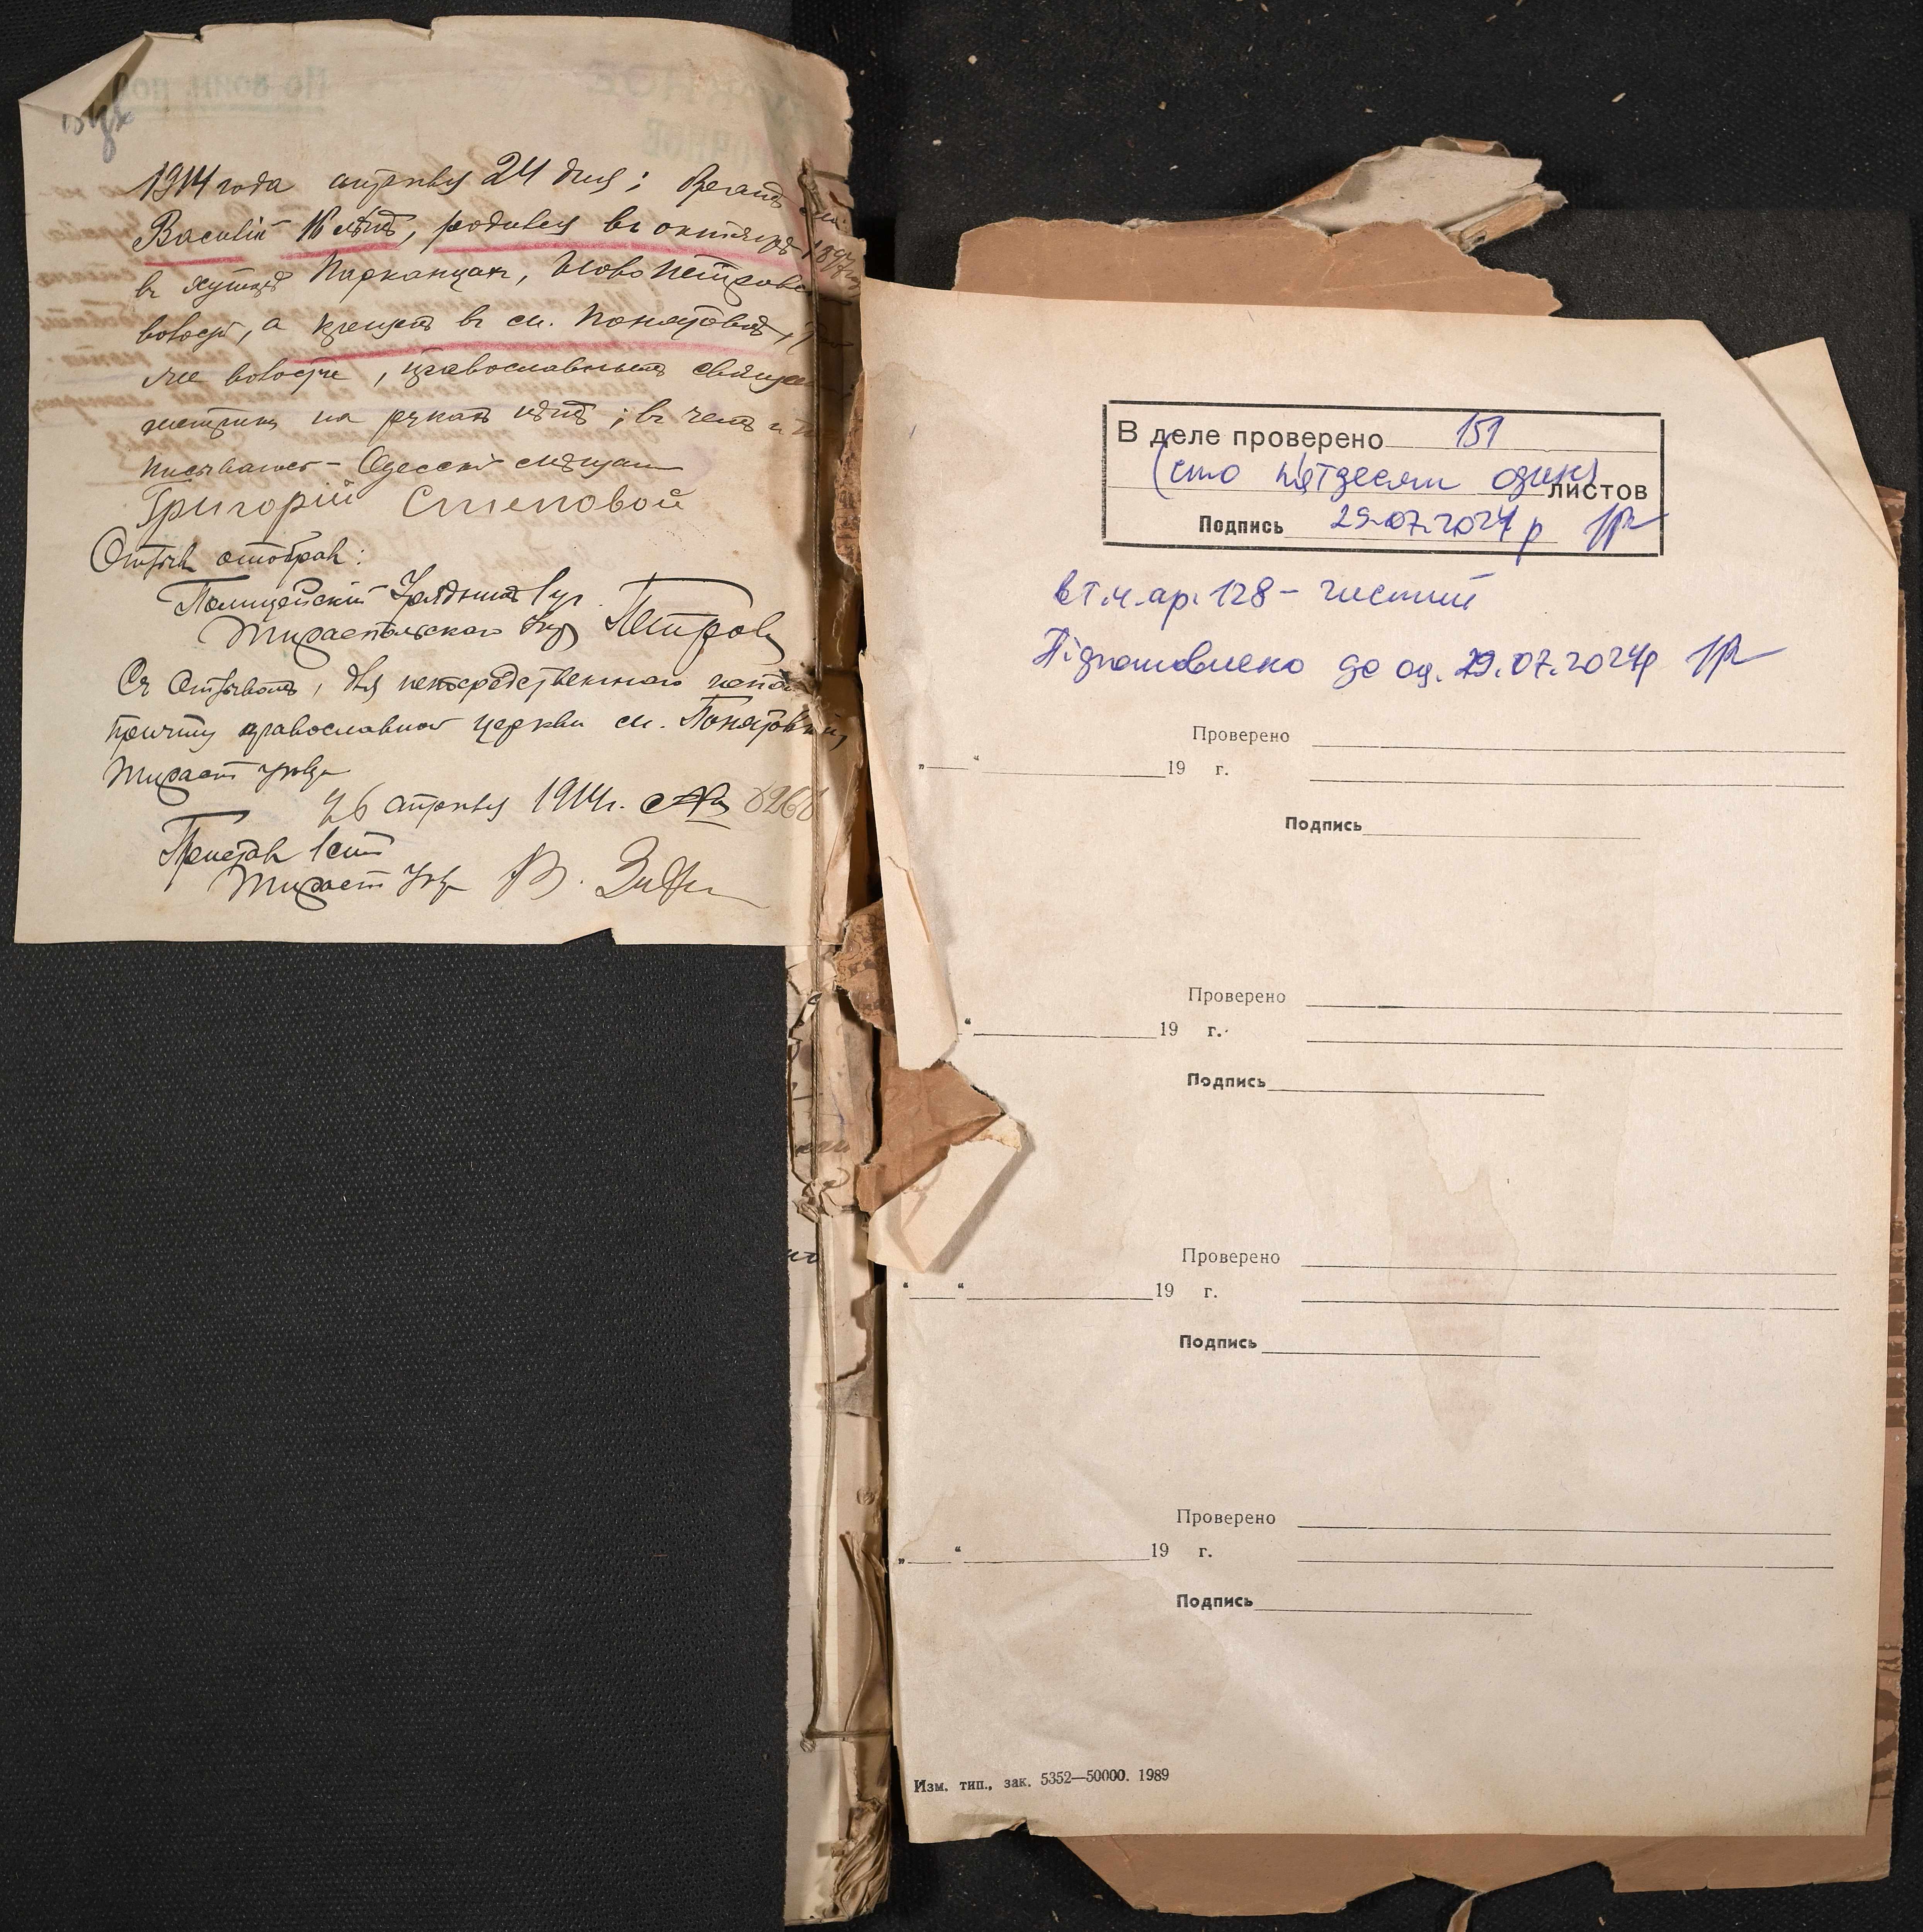 1914 года апрѣля 24 дня; братъ
Василій 16 лѣтъ, родился въ октябрѣ 1897
въ хуторѣ Парканцах, Ново Петровс
волости, а крещенъ въ с. Понятовкѣ,
же волости, православнымъ священ
метрики на рукахъ нѣтъ; въ чемъ и
писываюсь - Одесскій мѣщанин
Григорій Степовой
Отзыв отобрал:
Полицейскій Урядникъ 1 уч.
Тираспольскаго уѣз Петров
Съ отзывомъ, для непосредственнаго
причту православной церкви с. Понятовки,
Тирасп уѣзда
26 апрѣля 1914 г. №
Пристав 1 ст
Тирасп уѣз В.
В деле проверено 151
(сто п'ятдесят один)
листов
Подпись 29.07.2024 р
в т.ч. ар. 128 - чистий
Підготовлено до оц. 29.07.2024р
Проверено
„ “ 19 г.
Подпись
Проверено
“ 19 г.
Подпись
Проверено
“ “ 19 г.
Подпись
Проверено
„ “ 19 г.
Подпись
Изм. тип., зак. 5352—50000. 1989